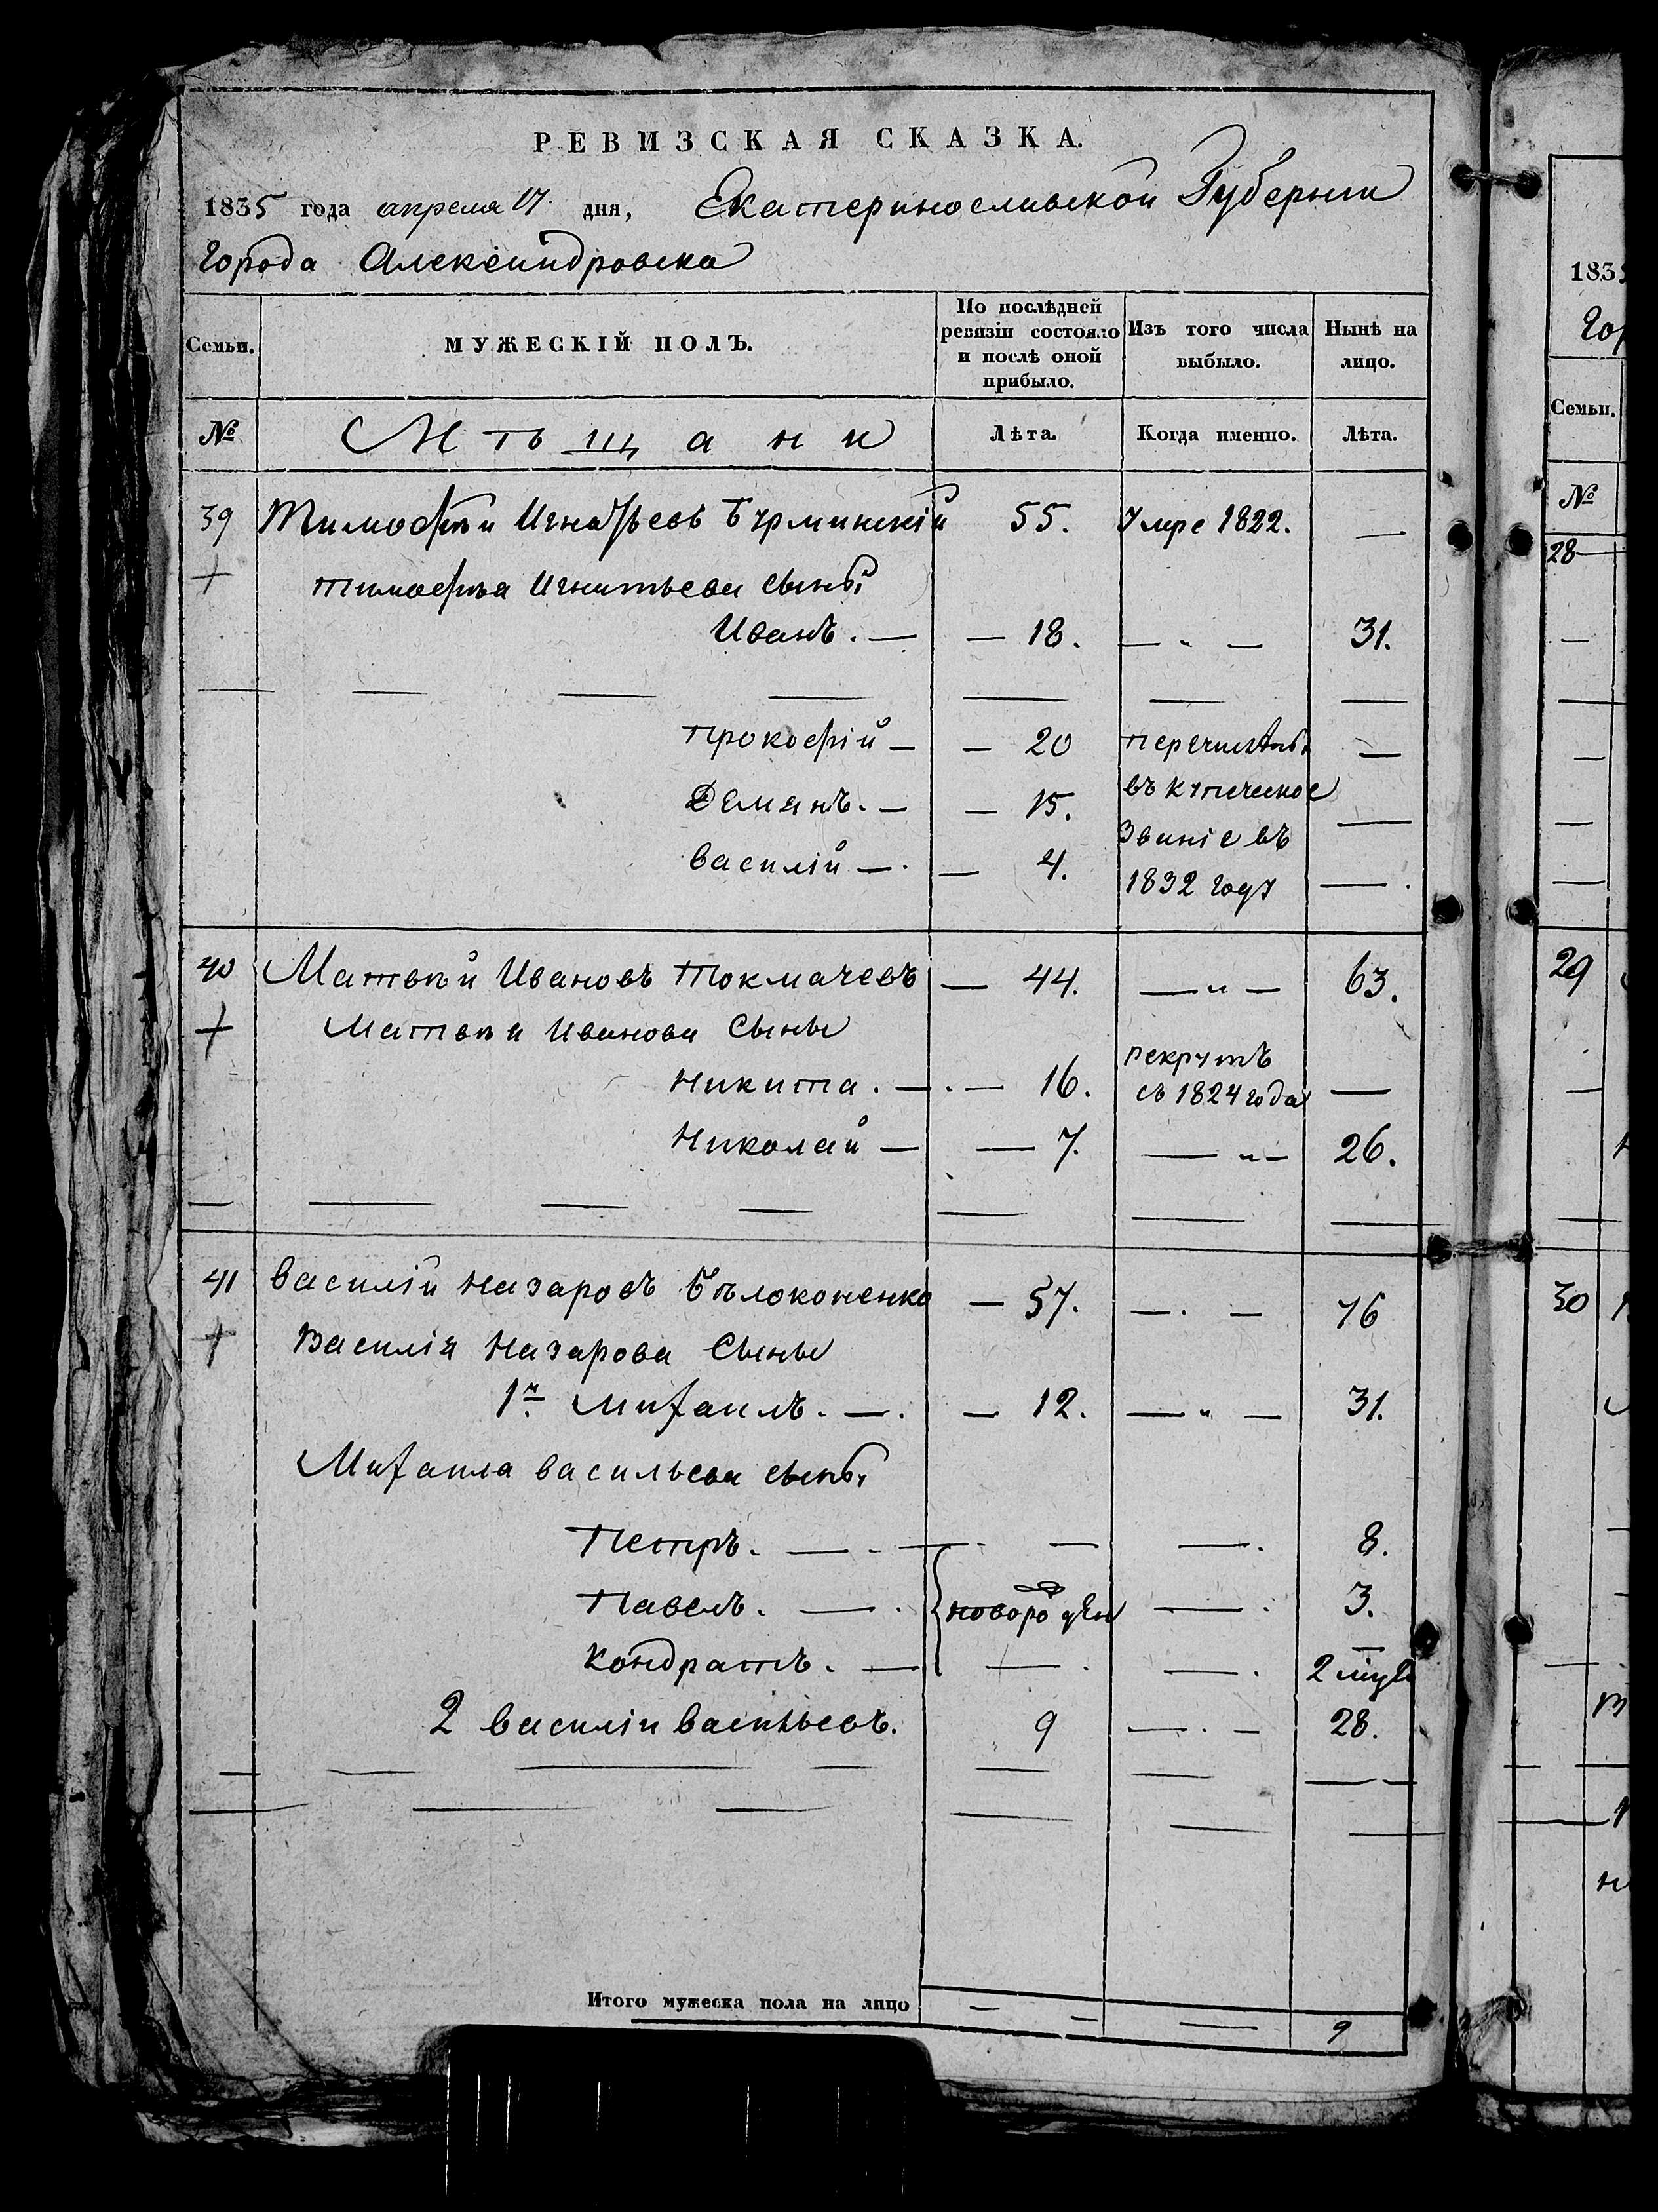 РЕВИЗСКАЯ СКАЗКА.
1835 года апреля 17. дня, Екатеринославской Губернии
Города Александровска
Семьи. МУЖЕСКІЙ ПОЛЪ. По послѣдней ревизіи состояло и послѣ оной прибыло. Изъ того числа выбыло. Нынѣ на лицо.
№ Мѣщане Лѣта. Когда именно. Лѣта.
39 Тимофѣй Игнатьевъ 55. Умре 1822. —
+ Тимофѣя Игнатьева сыны
Иванъ. — — 18. — " — 31.
Прокофій — — 20 перечислены —
Демянъ. — — 15. въ купеческое —
Василій — . — 4. званіе въ
1832 году — .
40 Матвѣй Ивановъ Токмачевъ — 44. — " — 63.
+ Матвѣя Иванова Сыны
Никита . — . — 16. рекрутъ съ 1824 года —
Николай — — 7. — " — 26.
41 Василій Назаровъ Бѣлоконенко — 57. — . — 76
+ Василія Назарова Сыны
1й Михаилъ. — . — 12. — " — 31.
Михаила Васильева сыны
Петръ. — . — . — — . 8.
Павелъ. — . новорожден — . 3.
Кондратъ. — — . — . 2
2 Василій Васильевъ. 9 — . — 28.
Итого мужеска пола на лицо — — — 9
1835
Гор
Семьи.
№
28
29
30